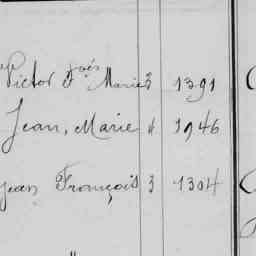 Victor Fois Marie 3 1391
Jean, Marie 4 1946
Jean François 3 1304
"